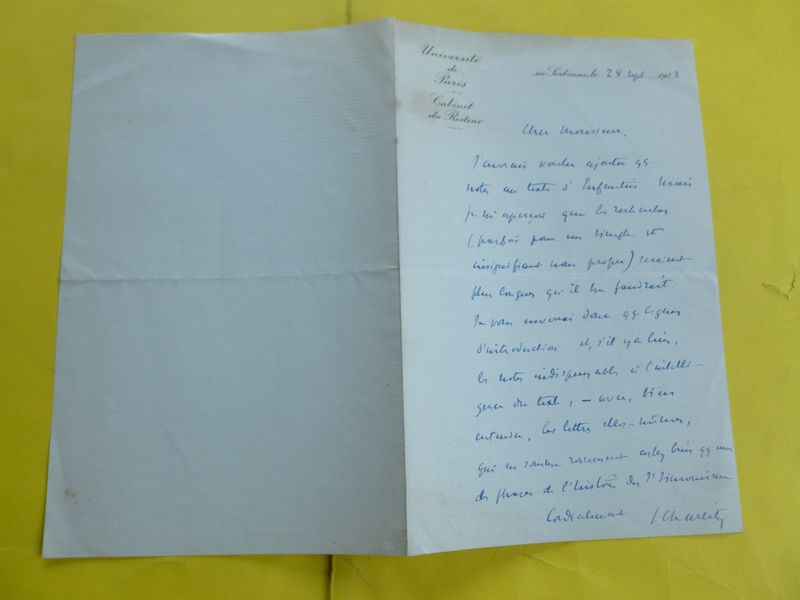 Université
de
Paris
Cabinet
du Recteur
en Sorbonne, le 28 sept 1932
Cher Monsieur,
J'aurais voulu ajouter qq.
notes au texte d'Enfantin mais
je m'aperçois que les recherches
(parfois pour un simple et
insignifiant nom propre) seraient
plus longues qu'il ne faudrait
Je vous enverrai donc qq lignes
d'introduction et, s'il y a lieu,
les notes indispensables à l'intelli-
gence du texte, – avec, bien
entendu, les lettres elles-mêmes,
qui en somme résument assez bien qq unes
des phases de l'histoire du St Simonisme
Cordialement S Charléty